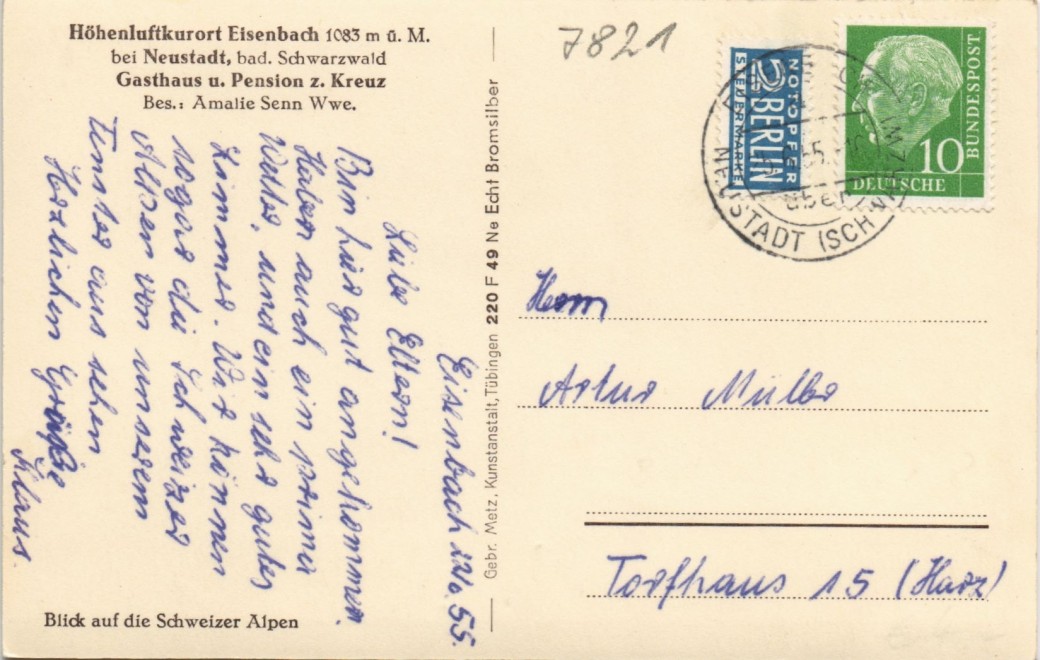 Höhenluftkurort Eisenbach 1083 m ü. M.
bei Neustadt, bad. Schwarzwald
Gasthaus u. Pension z. Kreuz
Bes.: Amalie Senn Wwe.
Eisenbach 55.
Liebe Eltern!
Bin hier gut angekommen.
Haben auch ein prima
Wetter, und ein sehr gutes
Zimmer. Wir können
sogar die Schweizer
Alpen von unserem
Fenster aus sehen
Herzlichen Grüße
Klaus.
Blick auf die Schweizer Alpen
Gebr. Metz, Kunstanstalt, Tübingen 220 F 49 Ne Echt Bromsilber
7821
NOTOPFER
2 BERLIN
STEUERMARKE
10
DEUTSCHE
BUNDESPOST
NEUSTADT (SCHWARZW
über
Herrn
Artur Müller
Torfhaus 15 (Harz)